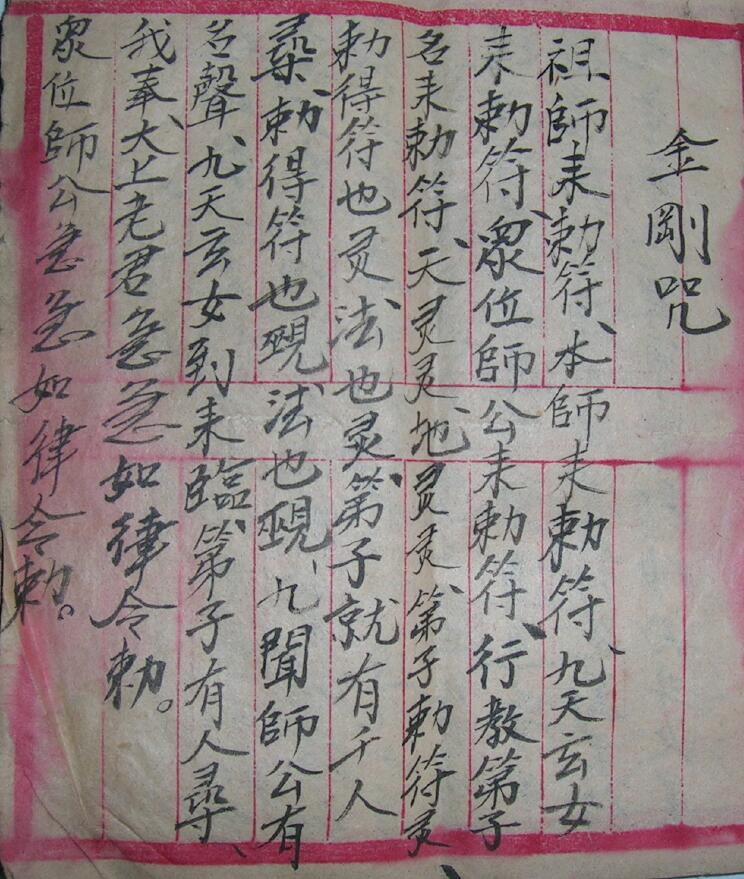 金剛咒
祖師来勅符、本師来勅符、九天玄女
来勅符、眾位師公来勅符、行教第子
名来勅符、天灵灵地、灵灵、第子勅符灵
勅得符也灵法也灵、第子就有千人
尋、勅得符也現法也現、九聞師公有
名聲、九天玄女到来臨、第子有人尋、
我奉、大上老君急急如律令勅。
眾位師公急急如律令勅。